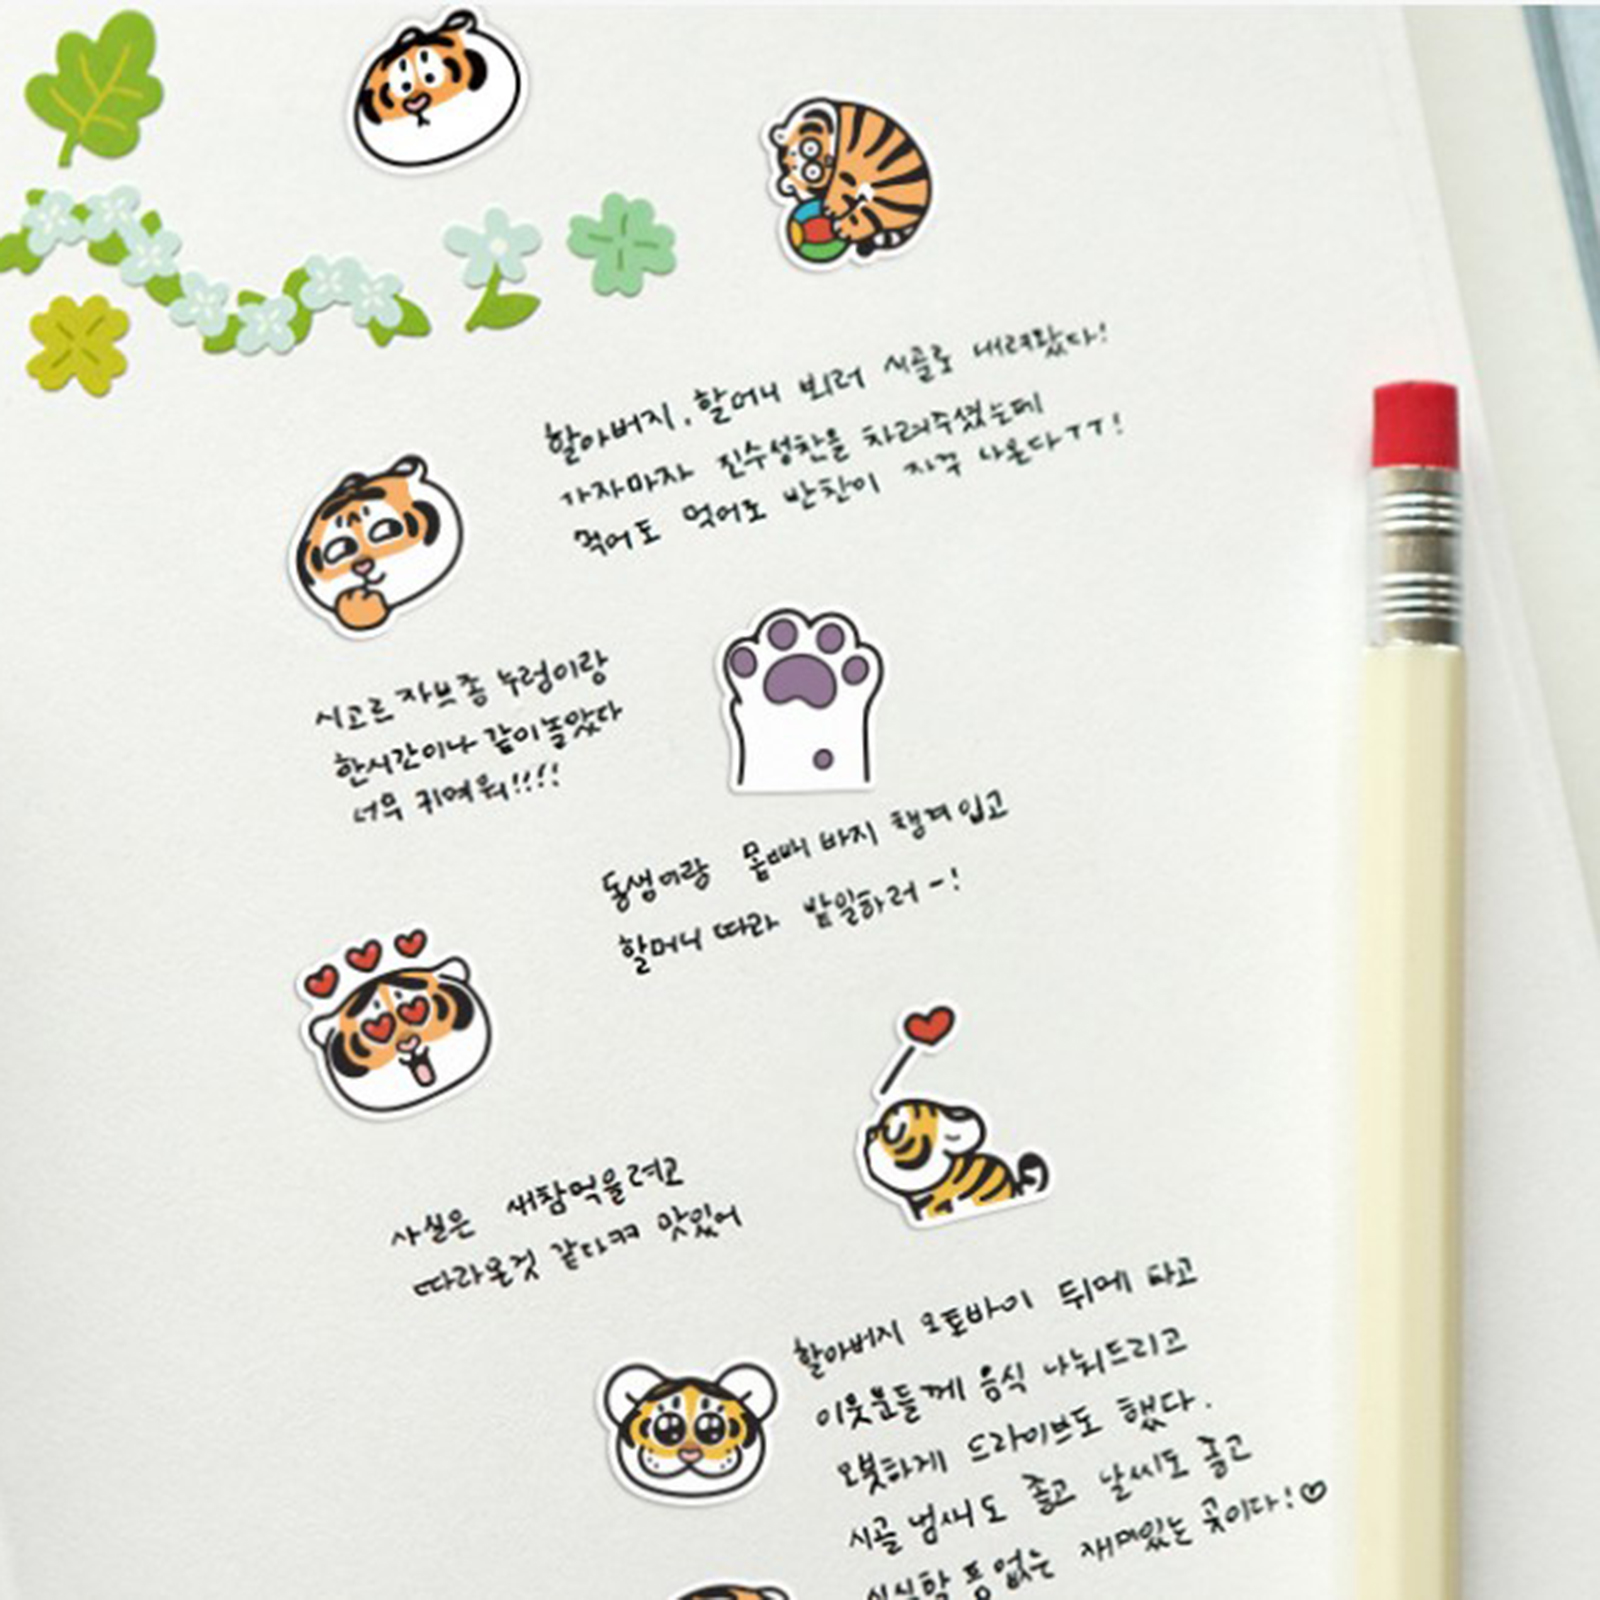 할아버지, 할머니 뵈러 시골로 내려왔다!
가자마자 진수성찬을 차려주셨는데
먹어도 먹어도 반찬이 자꾸 나온다ㅜㅜ!
시고르자브종 누렁이랑
한시간이나 같이놀았다
너무 귀여워!!!!
동생이랑 몸빼바지 챙겨입고
할머니 따라 밭일하러 ~!
사실은 새참먹을려고
따라온것 같다ㅋㅋ 맛있어
할아버지 오토바이 뒤에 타고
이웃분들께 음식 나눠드리고
오붓하게 드라이브도 했다.
시골 냄새도 좋고 날씨도 좋고
심심할 틈 없는 재미있는 곳이다!♡